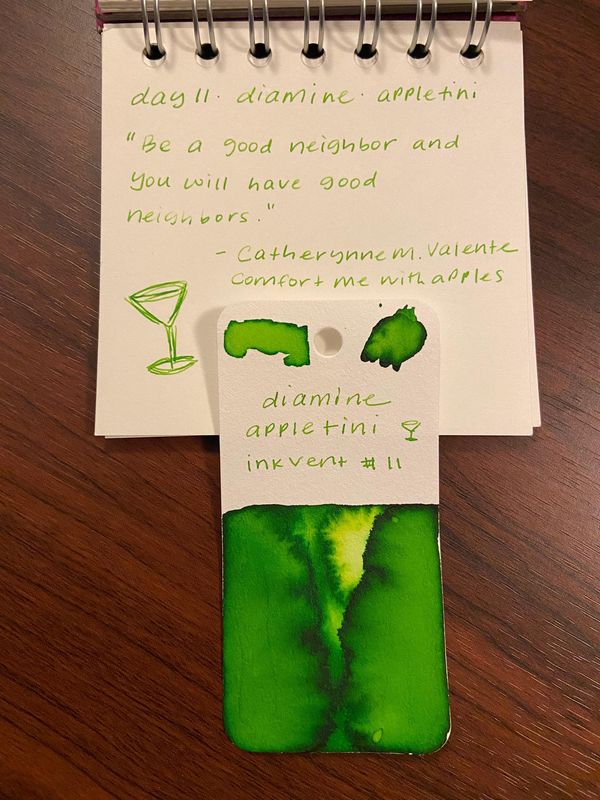 day 11 · diamine · appletini
"Be a good neighbor and
you will have good
neighbors."
- Catherynne M. Valente
comfort me with apples
diamine
appletini
inkvent #11